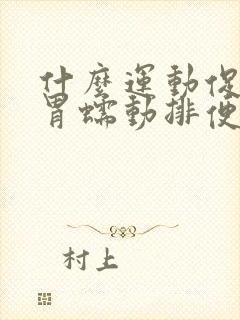 什麼運動促
胃蠕動排便
村上